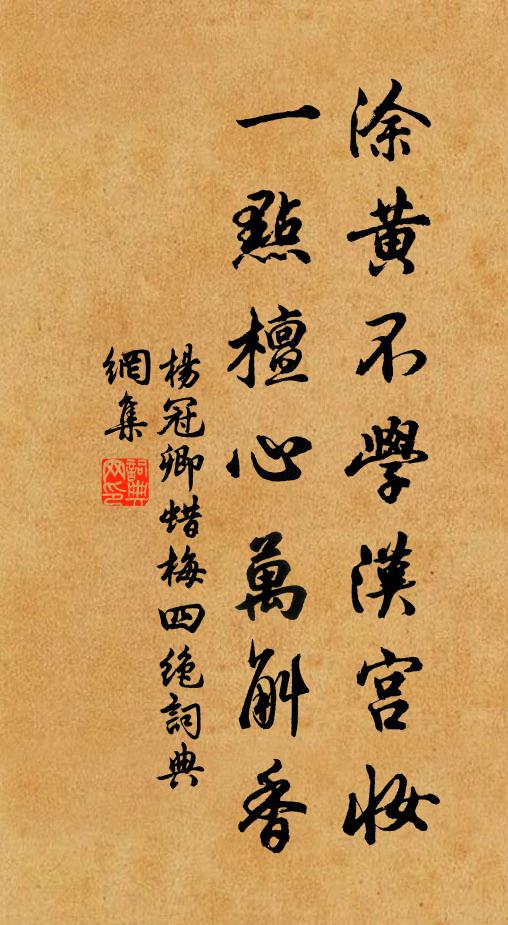 涂黄不學漢宫妝
一點檀心萬斛香
楊冠卿蜡梅四绝詞典
網集
詞典
网印